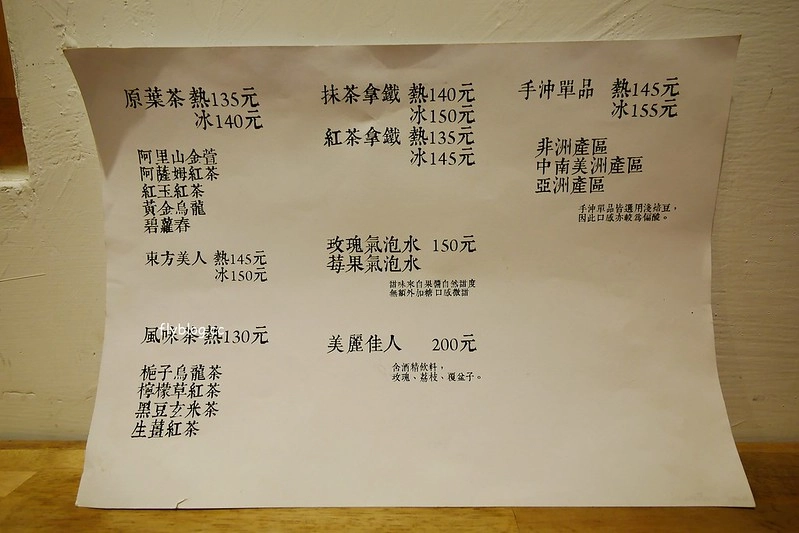 原葉茶 熱135元
冰140元
阿里山金萱
阿薩姆紅茶
紅玉紅茶
黃金烏龍
碧蘿春
東方美人 熱145元
冰150元
風味茶 熱130元
梔子烏龍茶
檸檬草紅茶
黑豆玄米茶
生薑紅茶
抹茶拿鐵 熱140元
冰150元
紅茶拿鐵 熱135元
冰145元
玫瑰氣泡水 150元
莓果氣泡水
甜味來自果醬自然甜度
無額外加糖口感微甜
美麗佳人 200元
含酒精飲料，
玫瑰、荔枝、覆盆子。
手沖單品 熱145元
冰155元
非洲產區
中南美洲產區
亞洲產區
手沖單品皆選用淺焙豆，
因此口感亦較為偏酸。